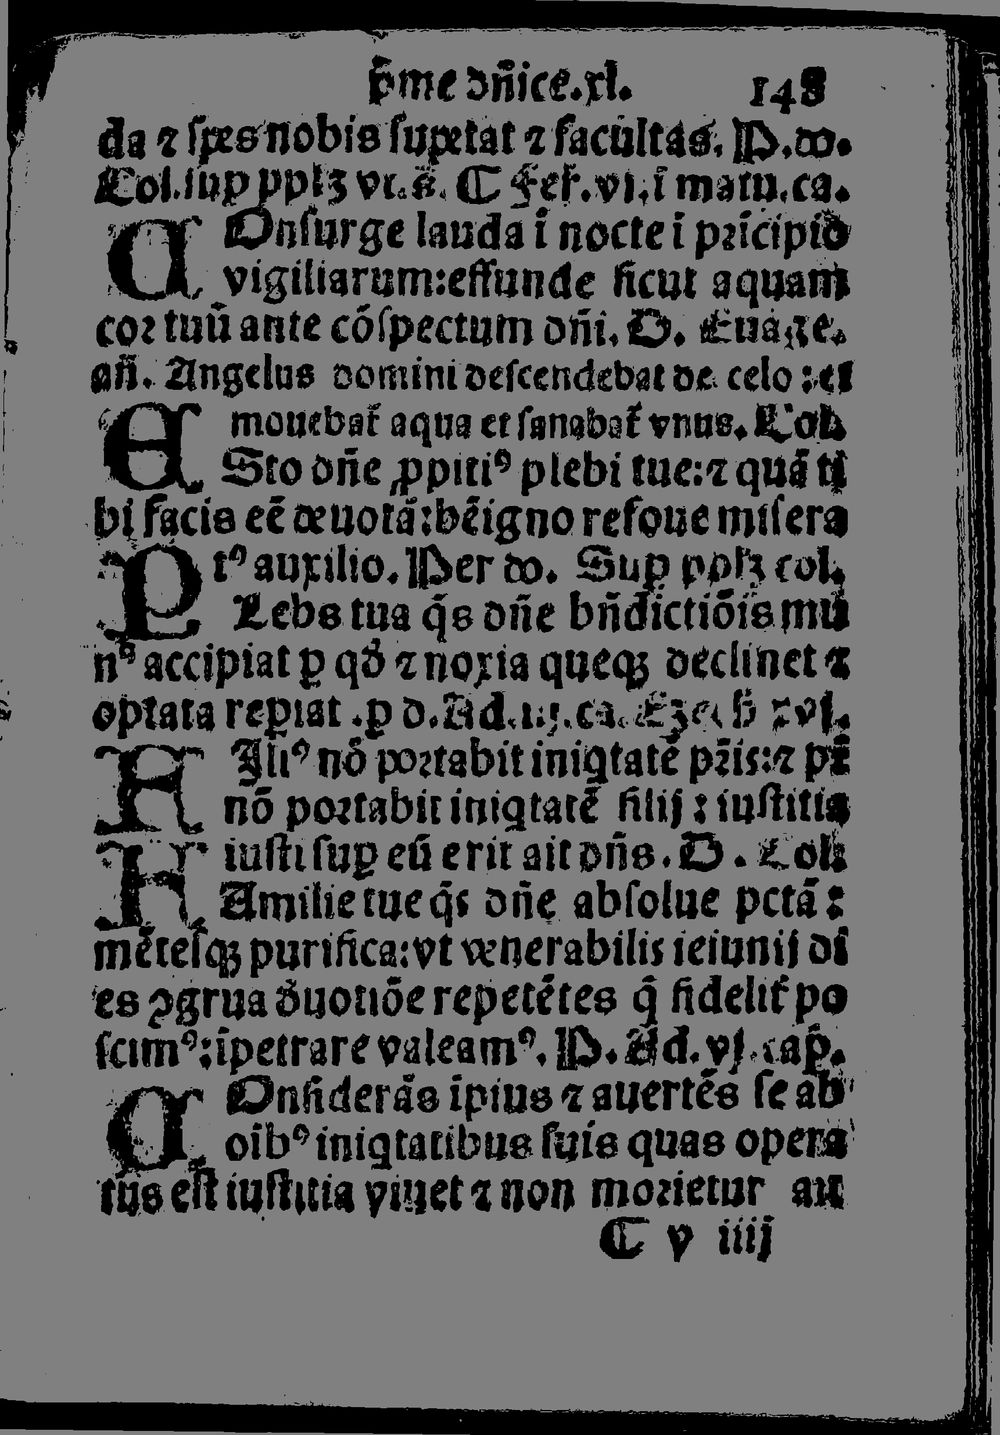 p̄me dn̄ice.xl. 148
da ⁊ sp̱es nobis sup̱etat ⁊ facultas. P. do.
Col. sup pplꝫ vt. s̄. C Fer̄. vj. ī matu. ca.
COnsurge lauda ī nocte i prīcipio
vigiliarum: effunde sicut aquam
cor tuū ante cōspectum dn̄i. D. Euāge.
an̄. Angelus domini descendebat de celo : et
mouebat̄ aqua et sanabat̄ vnus. Col.
ESto dn̄e ꝓpitiꝰ plebi tue: ⁊ quā ti
bi facis eē deuotā: bēigno refoue misera
tꝰ auxilio. Per do. Sup pplꝫ col.
PLebs tua q̄s dn̄e bn̄dictiōis mu
nꝰ accipiat ꝑ qd̄ ⁊ noxia queqꝫ declinet ⁊
optata rep̱iat .ꝑ d. Ad .iij. ca. Ezech xvj.
FIliꝰ nō portabit iniqtatē pr̄is: ⁊ pr̄
nō portabit iniqtatē filij : iustitia
iusti suꝑ eū erit ait dn̄s . D . Col.
FAmilie tue q̄s dn̄e absolue pctā :
mētesqꝫ purifica: vt venerabilis ieiunij di
es ꝯgrua d̄uotiōe repetētes q̄ fidelit̄ po
scimꝰ: īpetrare valeamꝰ. P. Ad. vj. cap̄.
COnsiderās īpius ⁊ auertēs se ab
oībꝰ iniqtatibus suis quas opera
tus est iustitia viuet ⁊ non morietur ait
C v iiij